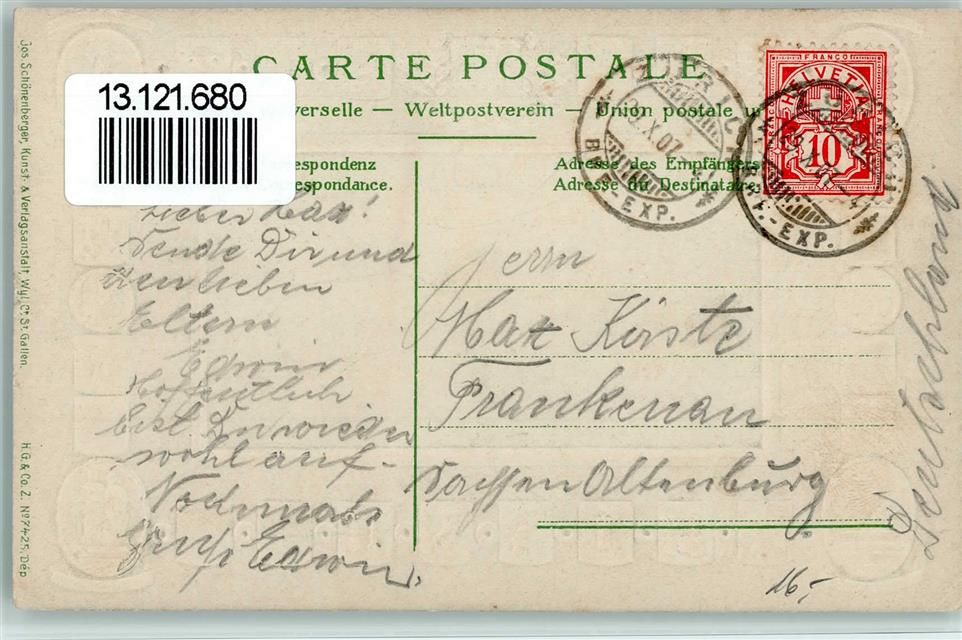 CARTE POSTALE
13.121.680
verselle — Weltpostverein — Union postale u
respondenz
respondance.
Adresse des Empfängers
Adresse du Destinataire
FRANCO
HELVETIA
10
X.07
BRF.-EXP.
BRF.-EXP.
Lieber Max!
Sende Dir und
den lieben
Eltern
Edwin
Hoffentlich
bist Du wieder
wohl auf.
Nochmals
Gruß Edwin.
Herrn
Max Kirste
Frankenau
Sachsen Altenburg
Deutschland
16,-
Jos. Schönenberger, Kunst- & Verlagsanstalt, Wyl Ct. St. Gallen.
H.G. & Co. Z. No 7425, Dép